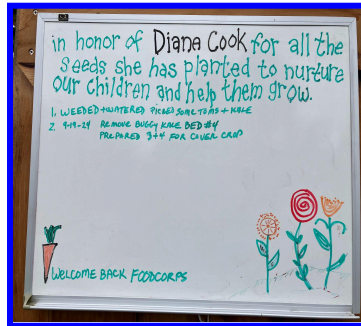 in honor of Diana Cook for all the
seeds she has planted to nurture
our children and help them grow.
1. WEEDED + WATERED PICKED SOME TOMS + KALE
2. 9-19-24 REMOVE BUGGY KALE BED #4
PREPARED 3+4 FOR COVER CROP
WELCOME BACK FOODCORPS